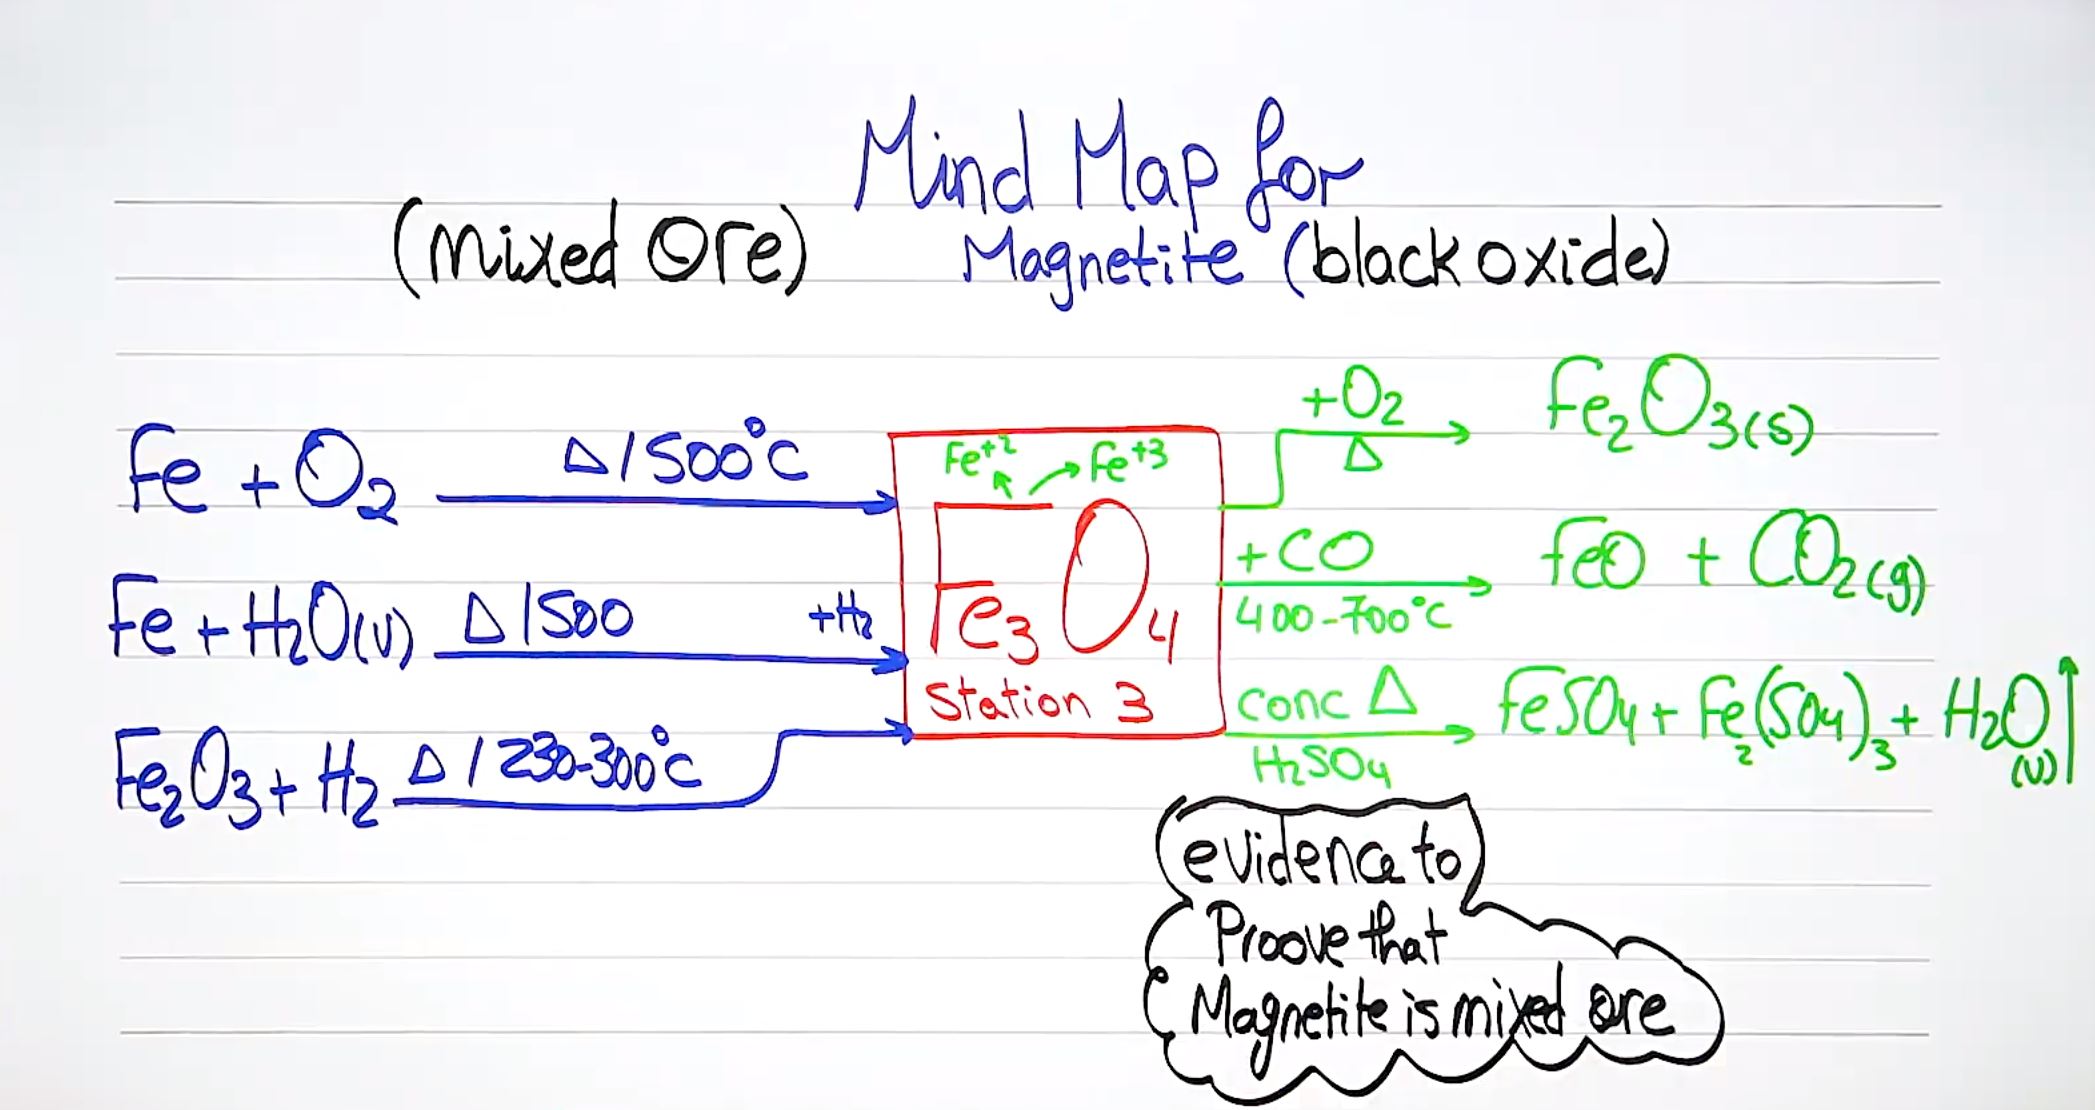 Mind Map for
(mixed Ore) Magnetite (black oxide)
Fe + O2 Δ/500°C
Fe + H2O(v) Δ/500 +H2
Fe2O3 + H2 Δ/230-300°C
Fe+2 Fe+3
Fe3O4
Station 3
+O2 Δ Fe2O3(s)
+CO 400-700°C FeO + CO2(g)
conc Δ H2SO4 FeSO4 + Fe2(SO4)3 + H2O(v)↑
evidence to
Proove that
Magnetite is mixed ore